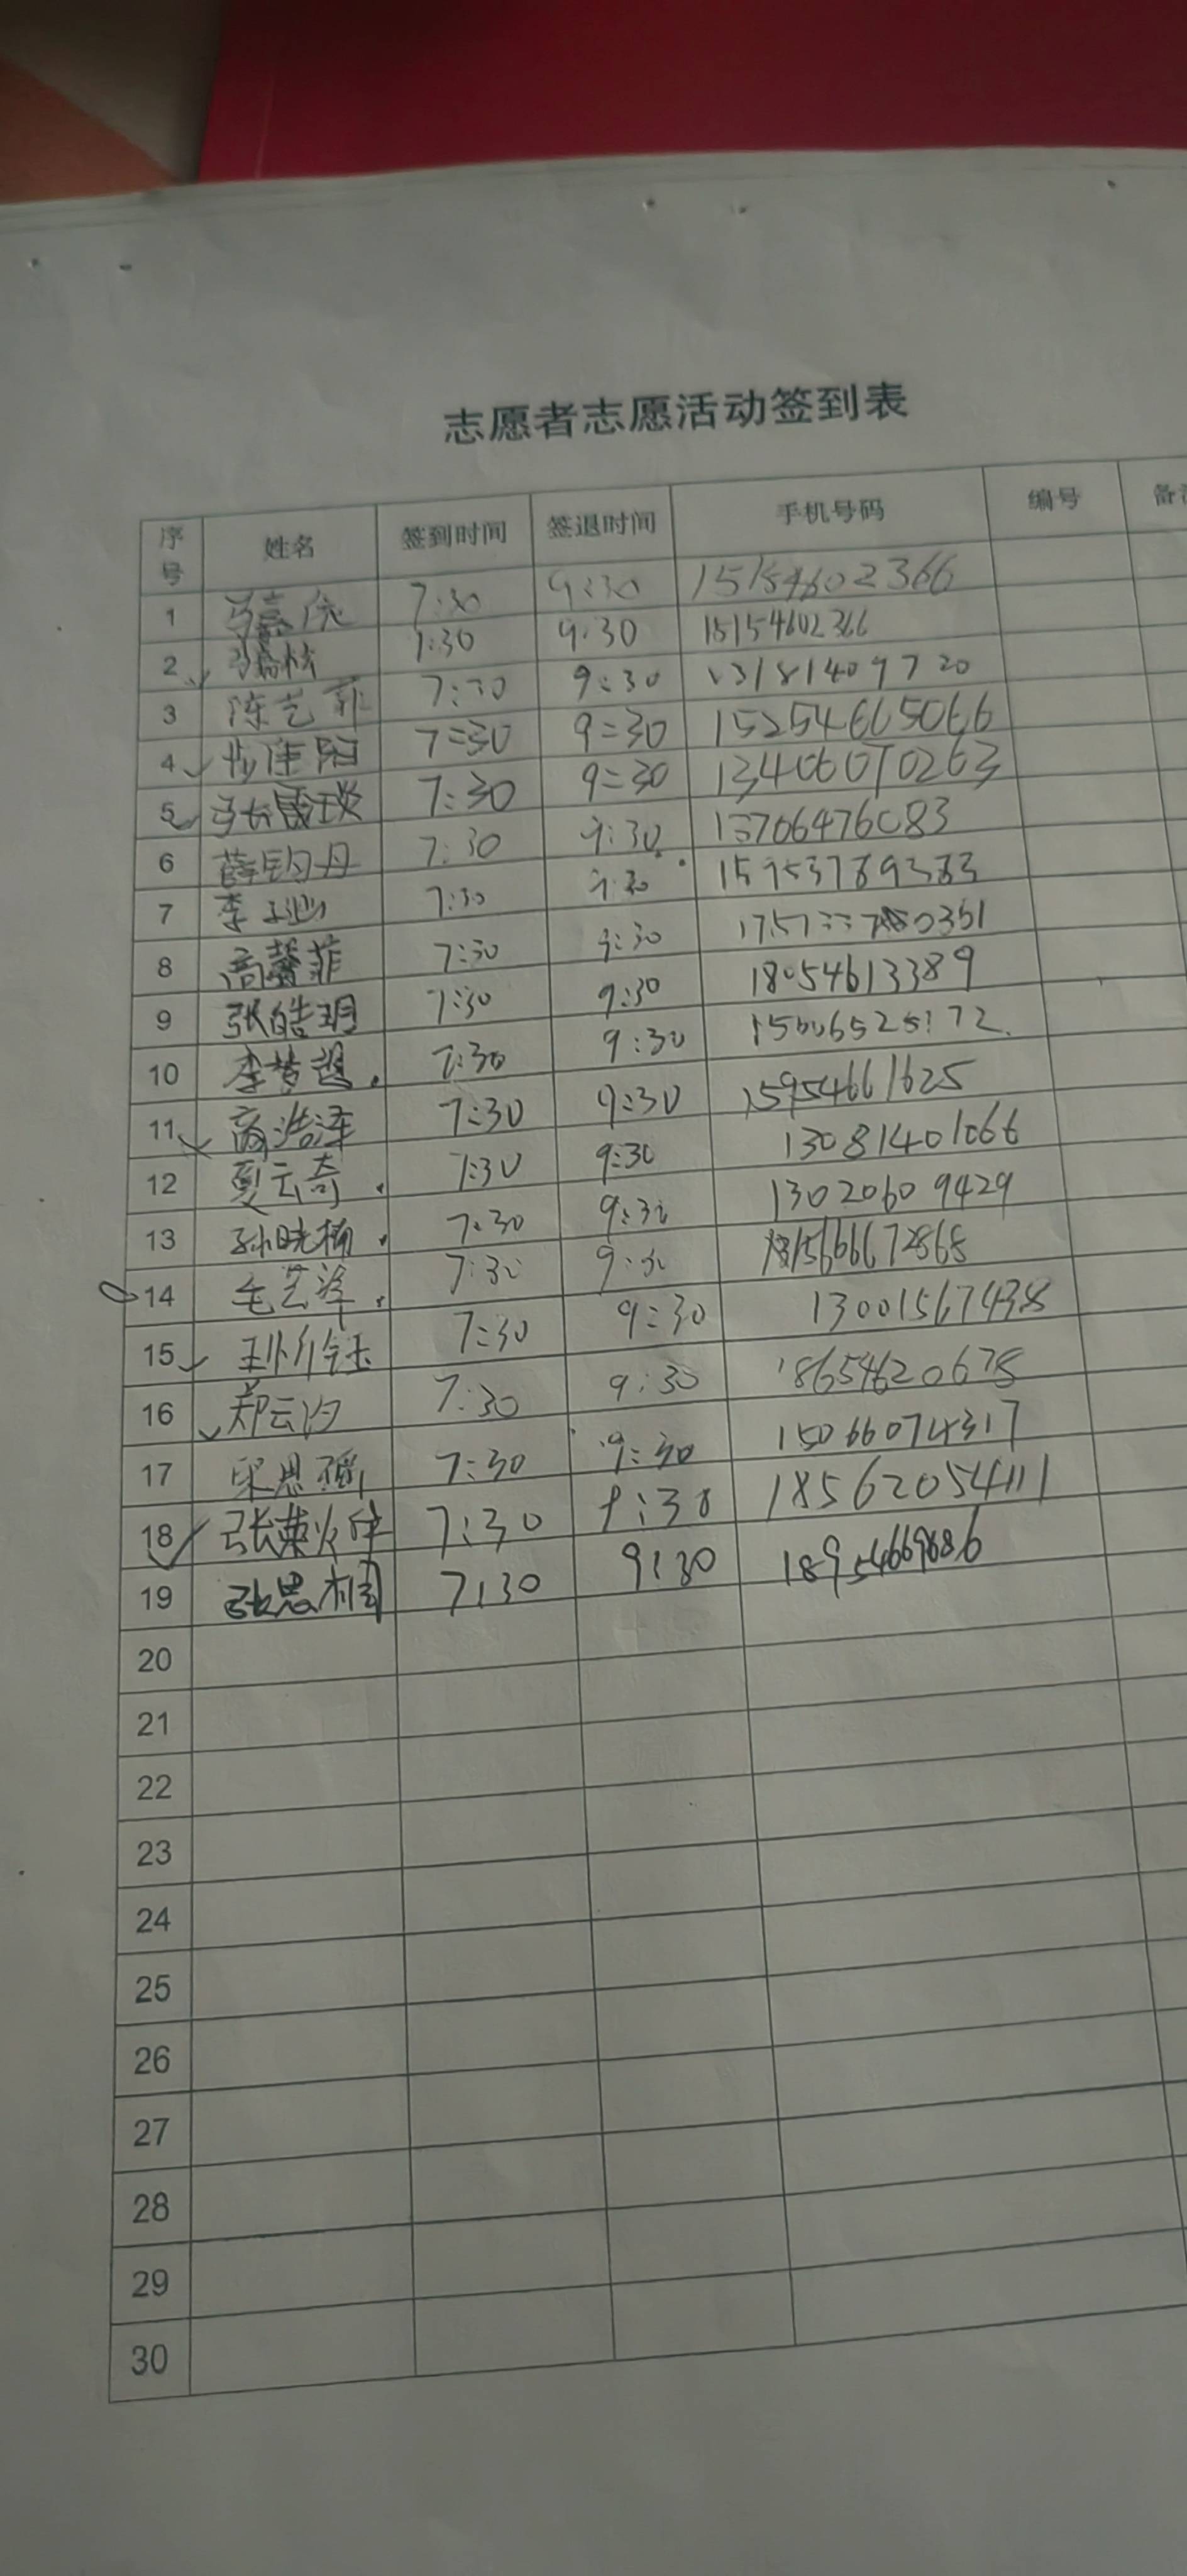 志愿者志愿活动签到表
序号 姓名 签到时间 签退时间 手机号码 编号 备
1 7:30 9:30 15154602366
2 7:30 9:30 15154602366
3 陈艺菲 7:30 9:30 13181409720
4 7:30 9:30 15254665066
5 7:30 9:30 13406070263
6 薛钧丹 7:30 9:30 13706476083
7 李 7:30 9:30 15953789383
8 高馨菲 7:30 9:30
9 张皓玥 7:30 9:30 18054613389
10 李梦 7:30 9:30
11 商浩泽 7:30 9:30 15954661625
12 夏云奇 7:30 9:30 13081401066
13 孙晓楠 7:30 9:30 13020609429
14 毛艺泽 7:30 9:30 15666672868
15 7:30 9:30 13001567438
16 郑云汐 7:30 9:30 18654620678
17 宋思 7:30 9:30 15066074317
18 张 7:30 9:30 18562054111
19 张思桐 7:30 9:30 18954669686
20
21
22
23
24
25
26
27
28
29
30